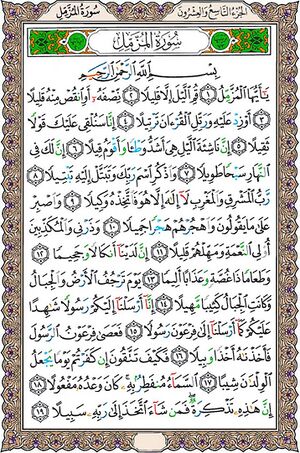 سُورَةُ المُزَّمِّل الجُزءُ التَّاسِعُ وَالعِشْرُونَ
سُورَةُ المُزَّمِّل
بِسْمِ اللَّهِ الرَّحْمَٰنِ الرَّحِيمِ
يَا أَيُّهَا الْمُزَّمِّلُ ١ قُمِ اللَّيْلَ إِلَّا قَلِيلًا ٢ نِصْفَهُ أَوِ انقُصْ مِنْهُ قَلِيلًا
٣ أَوْ زِدْ عَلَيْهِ وَرَتِّلِ الْقُرْءَانَ تَرْتِيلًا ٤ إِنَّا سَنُلْقِي عَلَيْكَ قَوْلًا
ثَقِيلًا ٥ إِنَّ نَاشِئَةَ اللَّيْلِ هِيَ أَشَدُّ وَطْئًا وَأَقْوَمُ قِيلًا ٦ إِنَّ لَكَ فِي
النَّهَارِ سَبْحًا طَوِيلًا ٧ وَاذْكُرِ اسْمَ رَبِّكَ وَتَبَتَّلْ إِلَيْهِ تَبْتِيلًا ٨
رَّبُّ الْمَشْرِقِ وَالْمَغْرِبِ لَا إِلَٰهَ إِلَّا هُوَ فَاتَّخِذْهُ وَكِيلًا ٩ وَاصْبِرْ
عَلَىٰ مَا يَقُولُونَ وَاهْجُرْهُمْ هَجْرًا جَمِيلًا ١٠ وَذَرْنِي وَالْمُكَذِّبِينَ
أُولِي النَّعْمَةِ وَمَهِّلْهُمْ قَلِيلًا ١١ إِنَّ لَدَيْنَا أَنكَالًا وَجَحِيمًا ١٢
وَطَعَامًا ذَا غُصَّةٍ وَعَذَابًا أَلِيمًا ١٣ يَوْمَ تَرْجُفُ الْأَرْضُ وَالْجِبَالُ
وَكَانَتِ الْجِبَالُ كَثِيبًا مَّهِيلًا ١٤ إِنَّا أَرْسَلْنَا إِلَيْكُمْ رَسُولًا شَاهِدًا
عَلَيْكُمْ كَمَا أَرْسَلْنَا إِلَىٰ فِرْعَوْنَ رَسُولًا ١٥ فَعَصَىٰ فِرْعَوْنُ الرَّسُولَ
فَأَخَذْنَاهُ أَخْذًا وَبِيلًا ١٦ فَكَيْفَ تَتَّقُونَ إِن كَفَرْتُمْ يَوْمًا يَجْعَلُ
الْوِلْدَانَ شِيبًا ١٧ السَّمَاءُ مُنفَطِرٌ بِهِ كَانَ وَعْدُهُ مَفْعُولًا ١٨
إِنَّ هَٰذِهِ تَذْكِرَةٌ فَمَن شَاءَ اتَّخَذَ إِلَىٰ رَبِّهِ سَبِيلًا ١٩